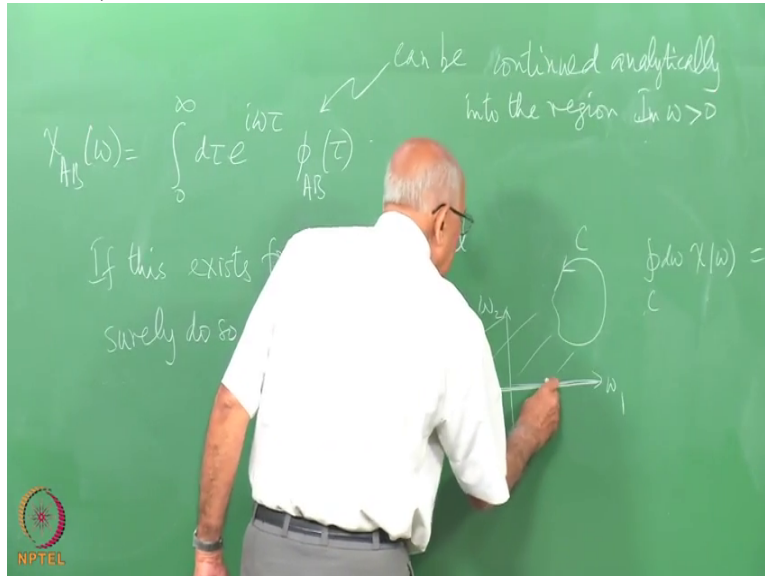 can be continued analytically
into the region Im ω > 0
χ_AB(ω) = ∫_0^∞ dτ e^{iωτ} φ_AB(τ)
If this exists
surely do so
ω₂
C
∮_C dω χ(ω) =
ω₁
NPTEL